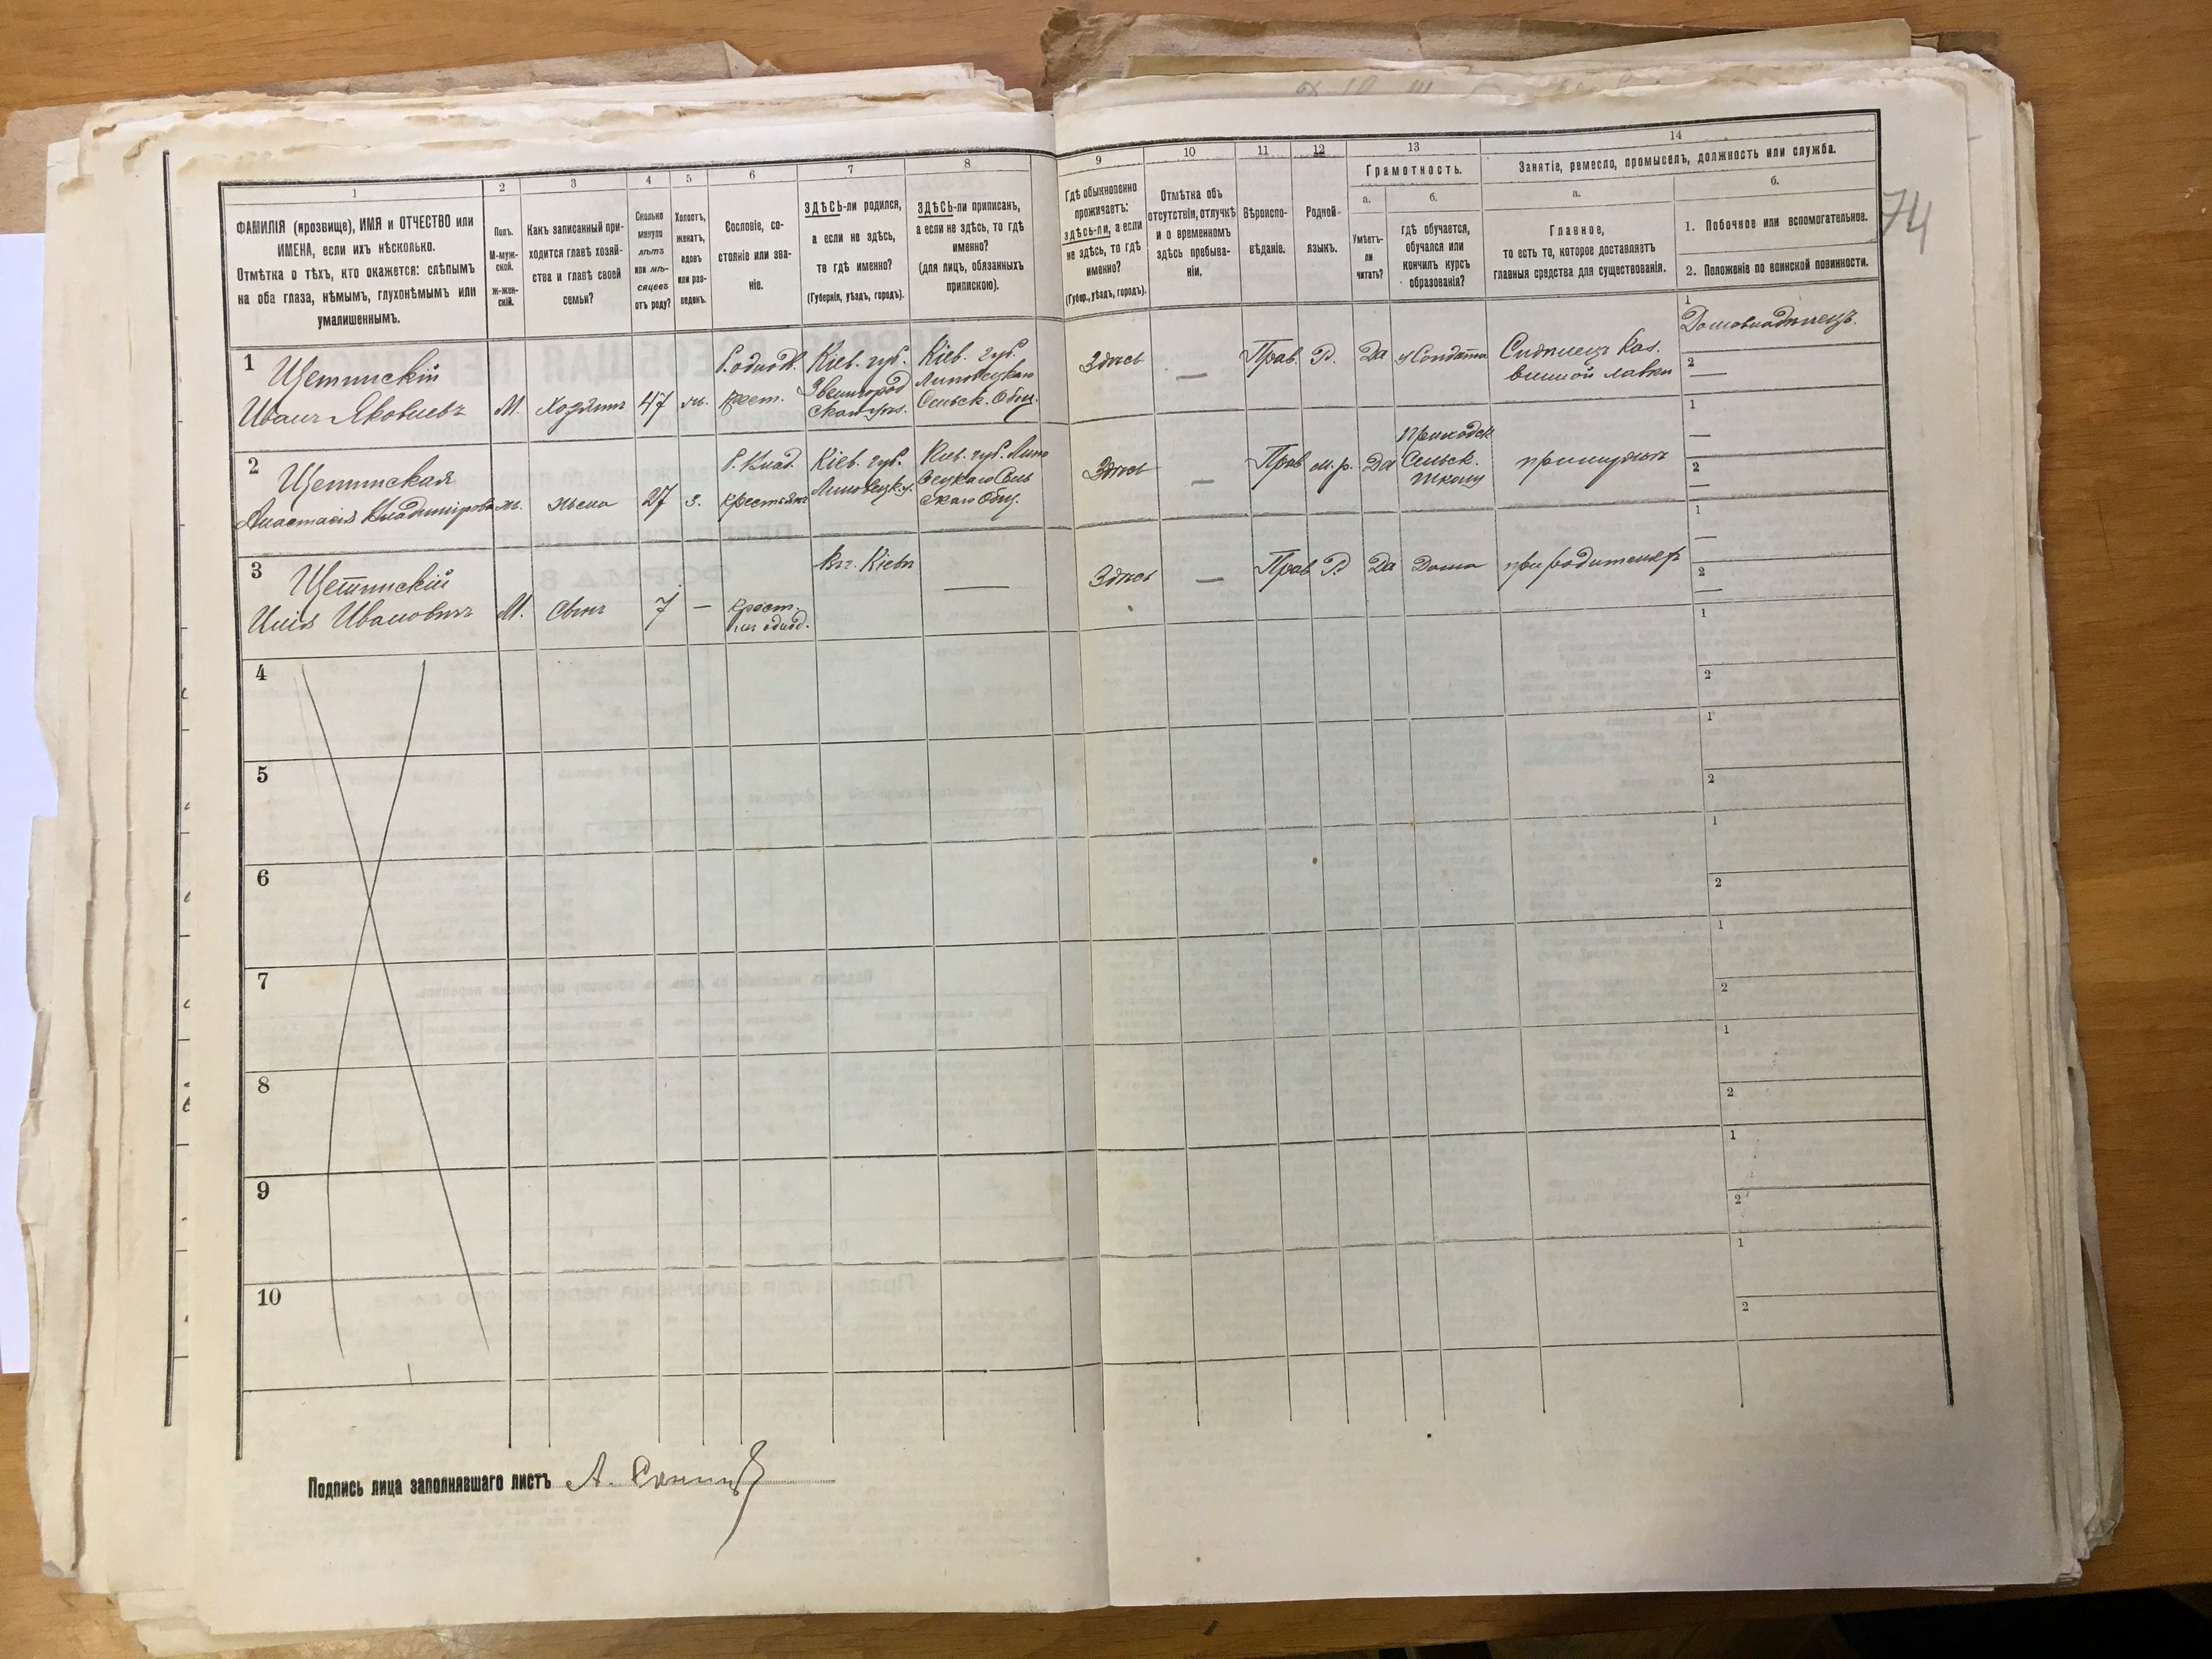 74
1
2
3
4
5
6
7
8
9
10
11
12
13
14
ФАМИЛІЯ (прозвище), ИМЯ и ОТЧЕСТВО или
ИМЕНА, если ихъ нѣсколько.
Отмѣтка о тѣхъ, кто окажется: слѣпымъ
на оба глаза, нѣмымъ, глухонѣмымъ или
умалишеннымъ.
Полъ.
М-муж-
ской.
Ж-жен-
скій.
Какъ записанный при-
ходится главѣ хозяй-
ства и главѣ своей
семьи?
Сколько
минуло
лѣтъ
или мѣ-
сяцевъ
отъ роду?
Холостъ,
женатъ,
вдовъ
или раз-
веденъ.
Сословіе, со-
стояніе или зва-
ніе.
ЗДѢСЬ-ли родился,
а если не здѣсь,
то гдѣ именно?
(Губернія, уѣздъ, городъ).
ЗДѢСЬ-ли приписанъ,
а если не здѣсь, то гдѣ
именно?
(для лицъ, обязанныхъ
припискою).
Гдѣ обыкновенно
проживаетъ:
здѣсь-ли, а если
не здѣсь, то гдѣ
именно?
(Губер., уѣздъ, городъ).
Отмѣтка объ
отсутствіи, отлучкѣ
и о временномъ
здѣсь пребыва-
ніи.
Вѣроиспо-
вѣданіе.
Родной
языкъ.
Грамотность.
а.
Умѣетъ-
ли
читать?
б.
гдѣ обучается,
обучался или
кончилъ курсъ
образованія?
Занятіе, ремесло, промыселъ, должность или служба.
а.
Главное,
то есть то, которое доставляетъ
главныя средства для существованія.
б.
1. Побочное или вспомогательное.
2. Положеніе по воинской повинности.
1
Щетинскій
Иванъ Яковлевъ
М.
Хозяинъ
47
крест.
Кіев. губ.
Звенигород
Кіев. губ.
Липовецкаго
Сельск. Общ.
Здѣсь
—
Прав.
Р.
Да
Сидѣлецъ Каз.
винной лавки
1
Домовладѣлецъ.
2
—
2
Щетинская
Анастасія Владимірова
ж.
жена
27
з.
Кіев. губ.
Липовецк. у.
Кіев. губ. Липо
вецкаго Сель
скаго Общ.
Здѣсь
—
Прав
м. р.
Да
Приходск
Сельск.
школу
при мужѣ
1
—
2
—
3
Щетинскій
Илія Ивановичъ
М.
Сынъ
7
—
крест.
изъ однод.
Въ г. Кіевѣ
—
Здѣсь
—
Прав
Р.
Да
Дома
при родителяхъ
1
—
2
—
4
1
2
5
1
2
6
1
2
7
1
2
8
1
2
9
1
2
10
1
2
Подпись лица заполнявшаго листъ А.